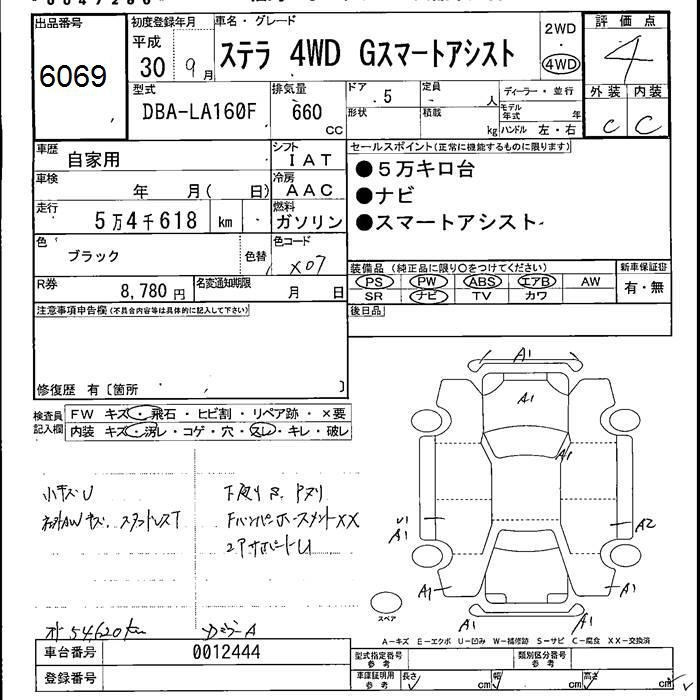 出品番号
6069
初度登録年月
平成
30 9月
車名・グレード
ステラ 4WD Gスマートアシスト
2WD
・
4WD
評価点
4
外装 内装
C C
型式
DBA-LA160F
排気量
660
CC
ドア
5
形状
定員
人
積載
kg
ディーラー・並行
モデル年式 年
ハンドル 左・右
車歴
自家用
シフト
IAT
車検
年 月( 日)
冷房
AAC
走行
5万4千618 km
燃料
ガソリン
色
ブラック
色替
色コード
X07
R券
8,780 円
名変通知期限
月 日
セールスポイント(正常に機能するものに限ります)
●5万キロ台
●ナビ
●スマートアシスト
装備品(純正品に限り○をつけてください)
PS PW ABS エアB AW
SR ナビ TV カワ
新車保証書
有・無
後日品
注意事項申告欄(不具合内容等は具体的に記入して下さい)
修復歴 有〔箇所 〕
検査員記入欄
FW キズ・飛石・ヒビ割・リペア跡・×要
内装 キズ・汚レ・コゲ・穴・スレ・キレ・破レ
小キズU
下廻りS、Pヌリ
FバンパーホースメントXX
オ 54620km
A1
A1
A1
U1
A1
A2
A1
A1
A1
A1
スペア
A-キズ E-エクボ U-凹み W-補修跡 S-サビ C-腐食 XX-交換済
車台番号
0012444
登録番号
型式指定番号
参考
類別区分番号
参考
車庫証明用
参考
長さ cm
幅 cm
高さ cm